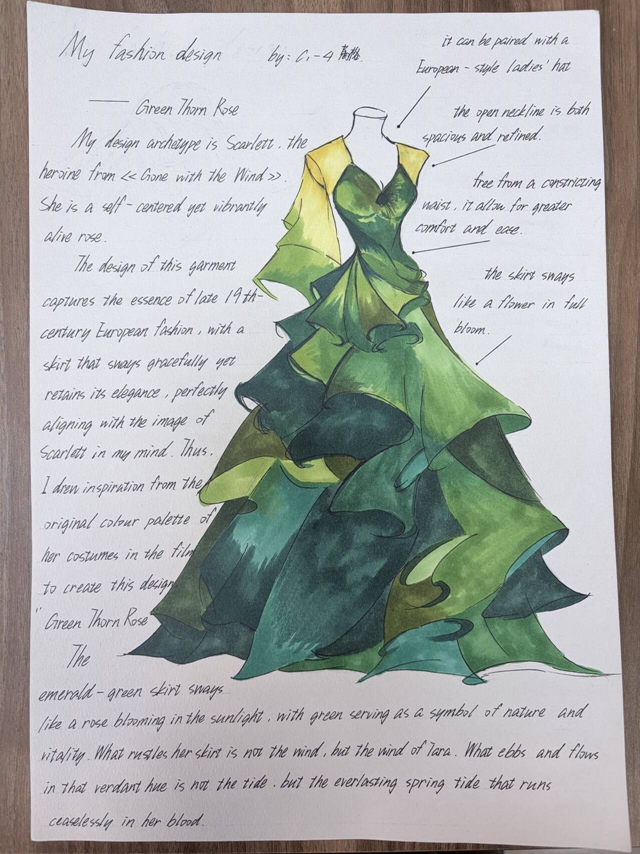 My fashion design by: C1-4
—— Green Thorn Rose
My design archetype is Scarlett, the
heroine from << Gone with the Wind >>.
She is a self-centered yet vibrantly
alive rose.
The design of this garment
captures the essence of late 19th-
century European fashion, with a
skirt that sways gracefully yet
retains its elegance, perfectly
aligning with the image of
Scarlett in my mind. Thus,
I drew inspiration from the
original colour palette of
her costumes in the film
to create this design
"Green Thorn Rose
The
emerald-green skirt sways
like a rose blooming in the sunlight, with green serving as a symbol of nature and
vitality. What rustles her skirt is not the wind, but the wind of Tara. What ebbs and flows
in that verdant hue is not the tide, but the everlasting spring tide that runs
ceaselessly in her blood.
it can be paired with a
European-style ladies' hat
the open neckline is both
spacious and refined.
free from a constricting
waist, it allow for greater
comfort and ease.
the skirt sways
like a flower in full
bloom.